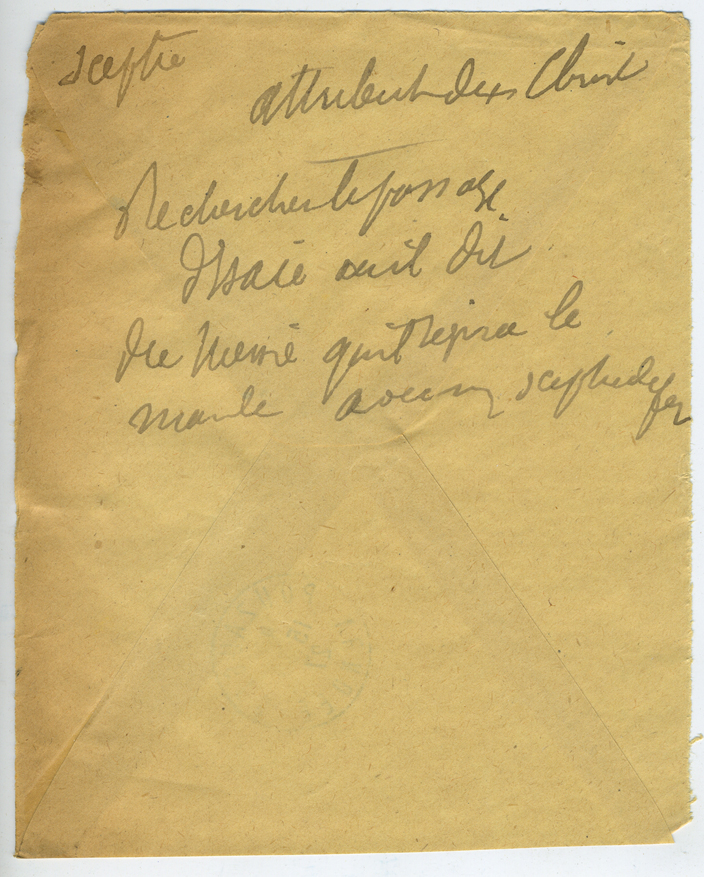 sceptre
attribut du Christ
Rechercher le passage
d'Isaïe où il dit
du Messie qu'il régira le
monde avec un sceptre de fer